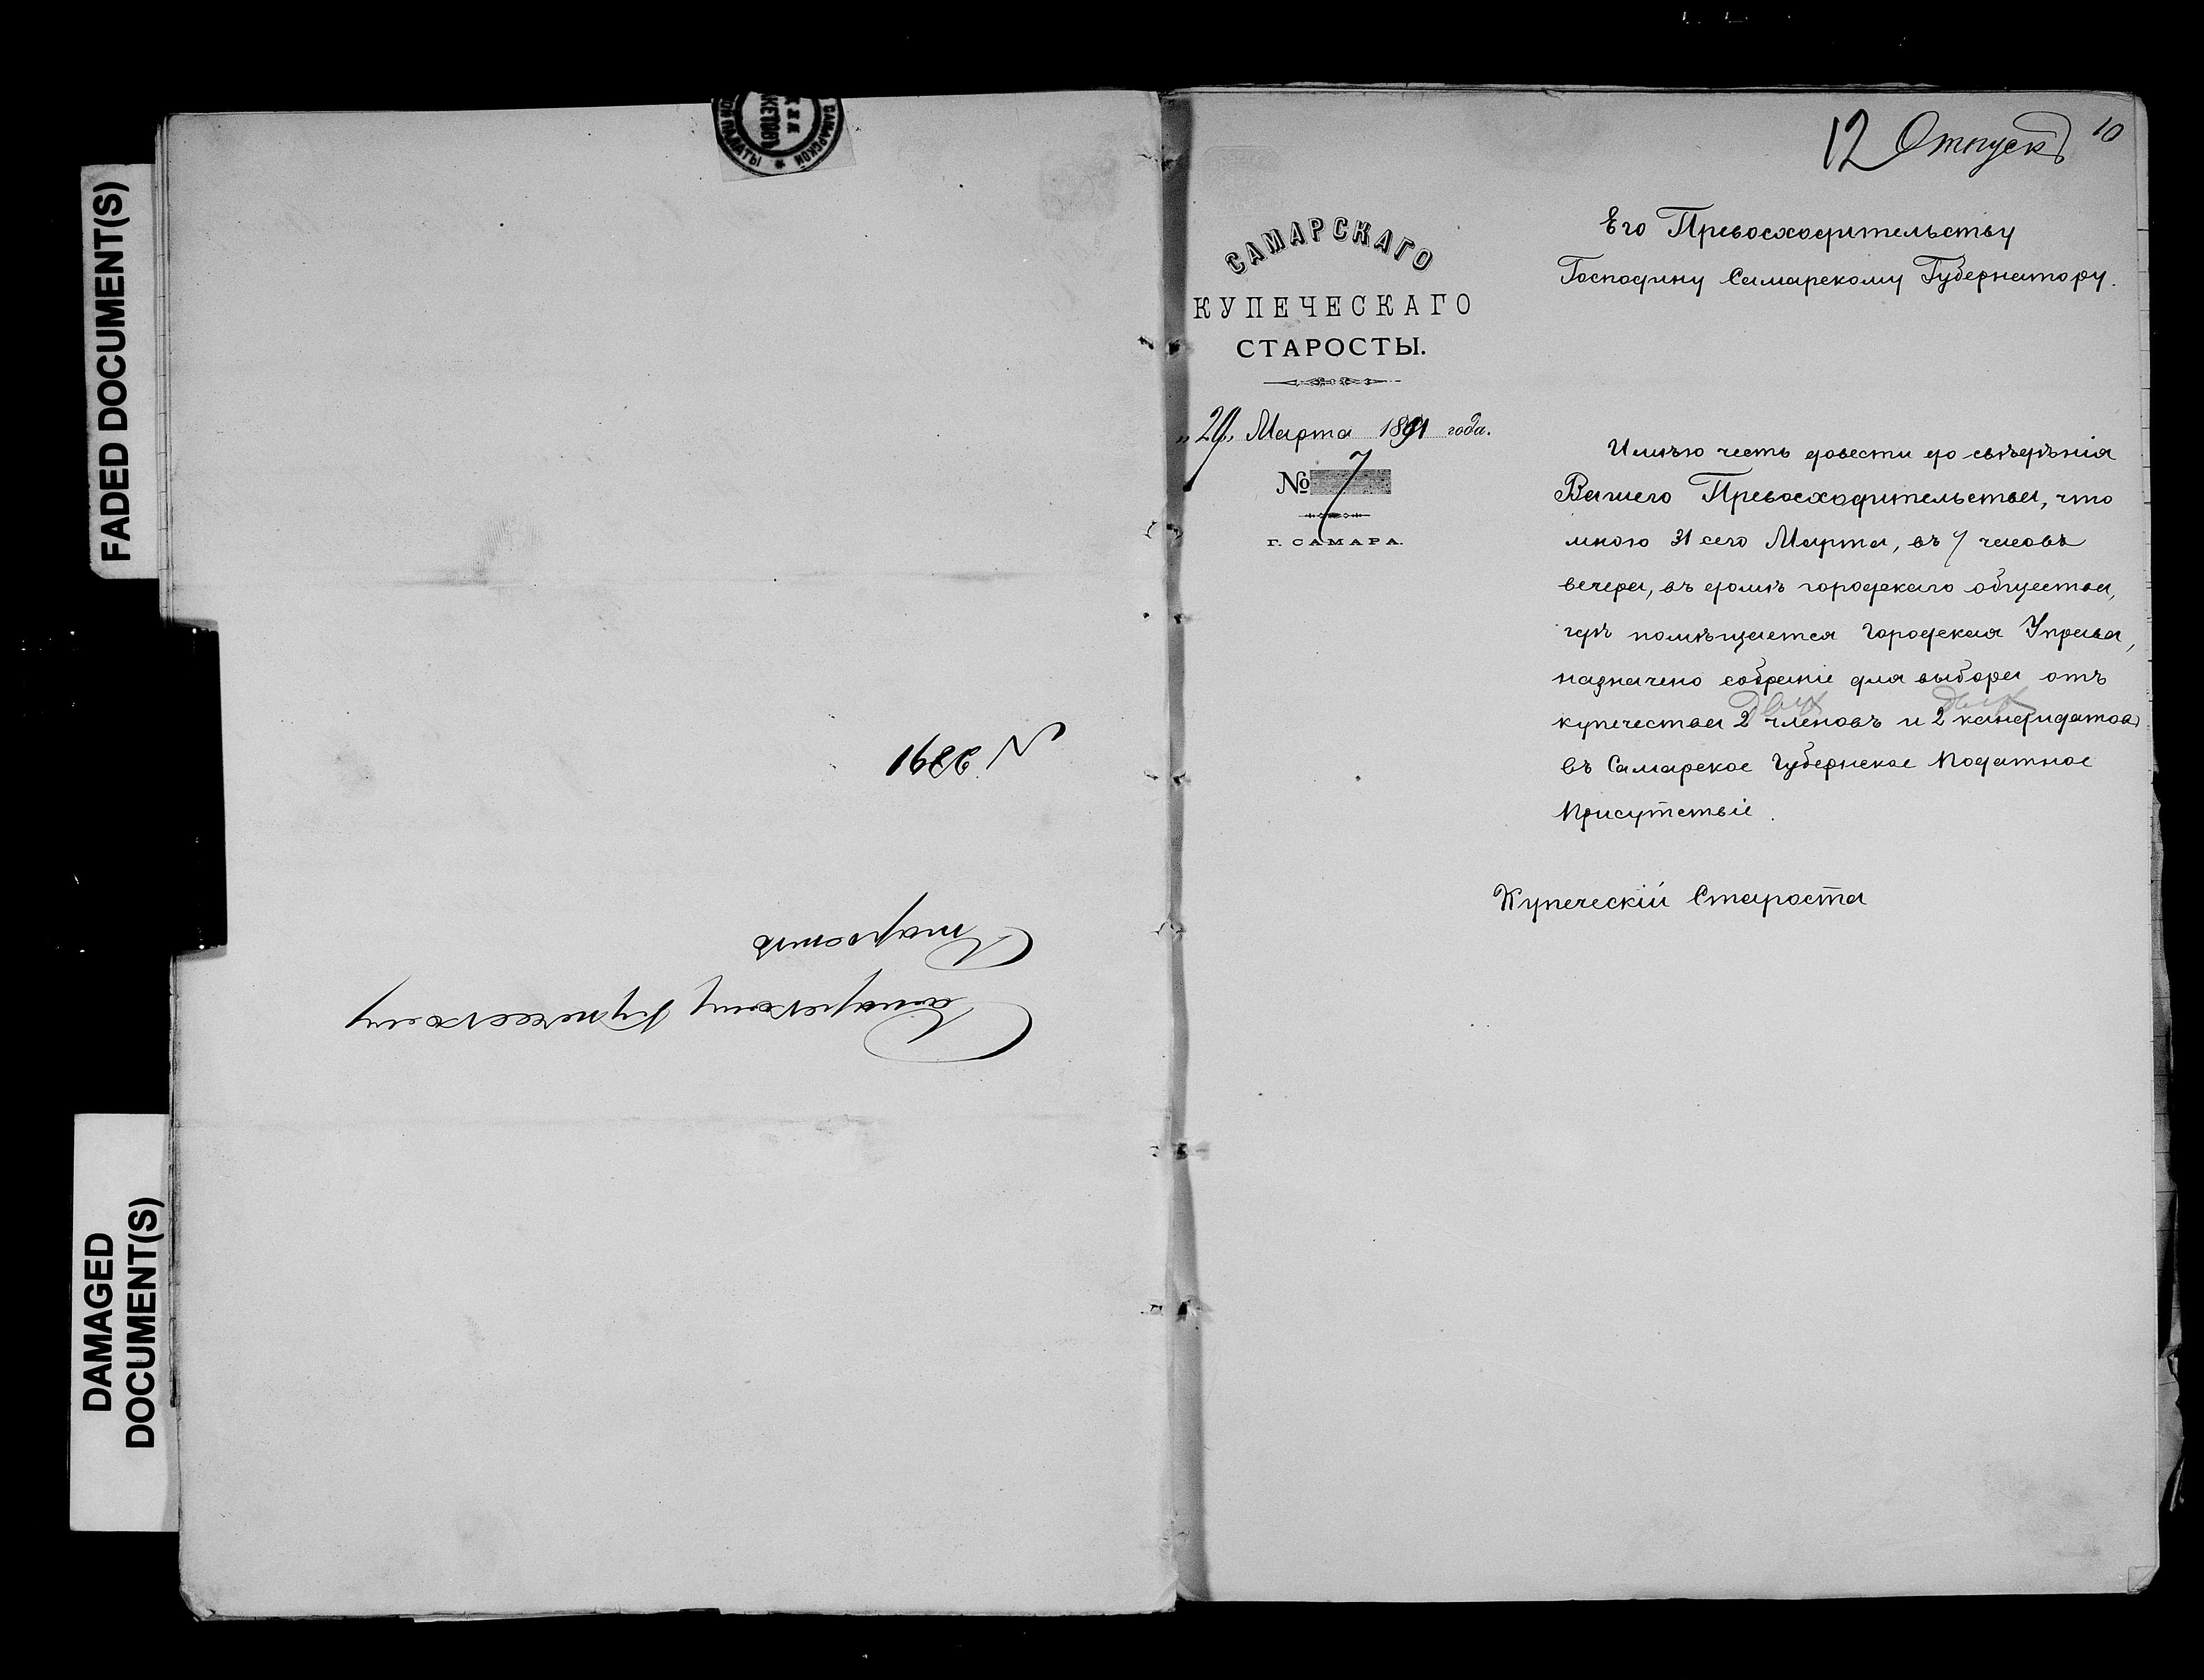 FADED DOCUMENT(S)
DAMAGED
DOCUMENT(S)
САМАРСКОЙ
ПАЛАТЫ
Самарскому Купеческому
Старостѣ
N 2291
12 Отпускъ 10
САМАРСКАГО
КУПЕЧЕСКАГО
СТАРОСТЫ.
„29„ Марта 1891 года.
№ 7
Г. САМАРА.
Его Превосходительству
Господину Самарскому Губернатору.
Имѣю честь довести до свѣдѣнія
Вашего Превосходительства, что
мною 31 сего Марта, въ 7 часовъ
вечера, въ домѣ городскаго общества,
гдѣ помѣщается Городская Управа,
назначено собраніе для выбора отъ
двух двух
купечества 2 членовъ и 2 кандидатовъ
въ Самарское Губернское Податное
Присутствіе.
Купеческій Староста